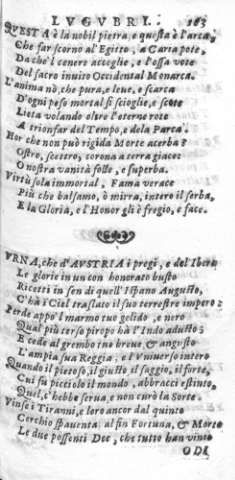 LVGVBRI. 163
QVESTA è la nobil pietra, e questa è l'arca,
Che far scorno al'Egitto, a Caria pote,
Da che'l cenere accoglie, e l'ossa vote
Del sacro inuito Occidental Monarca.
L'anima nò, che pura, e leue, e scarca
D'ogni peso mortal si scioglie, e scote
Lieta volando oltre l'eterne rote
A trionfar del Tempo, e dela Parca.
Hor che non può rigida Morte acerba?
Ostro, scettro, corona a terra giace:
O nostra vanità folle, e superba.
Virtù sola immortal, Fama verace
Più che balsamo, ò mirra, intero il serba,
E la Gloria, e l'Honor gli è fregio, e face.
VRNA, che d'AVSTRIA i pregi, e del'Ibero
Le glorie in un con honorato busto
Ricetti in sen di quell'Hispano Augusto,
C'hà'l Ciel traslato il suo terrestre impero:
Perde appo'l marmo tuo gelido, e nero
Qual più terso piropo hà l'Indo adusto;
E cede al grembo tuo breue, & angusto
L'ampia sua Reggia, e l'Vniuerso intero
Quando il pietoso, il giusto il saggio, il forte,
Cui fù picciolo il mondo, abbracci estinto,
Quel, c'hebbe serua, e non curò la Sorte.
Vinse i Tiranni, e loro ancor dal quinto
Cerchio spauenta: al fin Fortuna, & Morte
Le due possenti Dee, che tutto han vinto
ODI